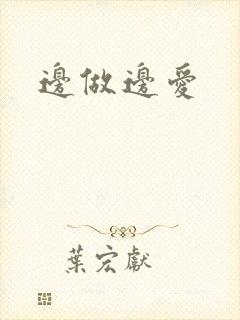 邊做邊愛
葉宏獻